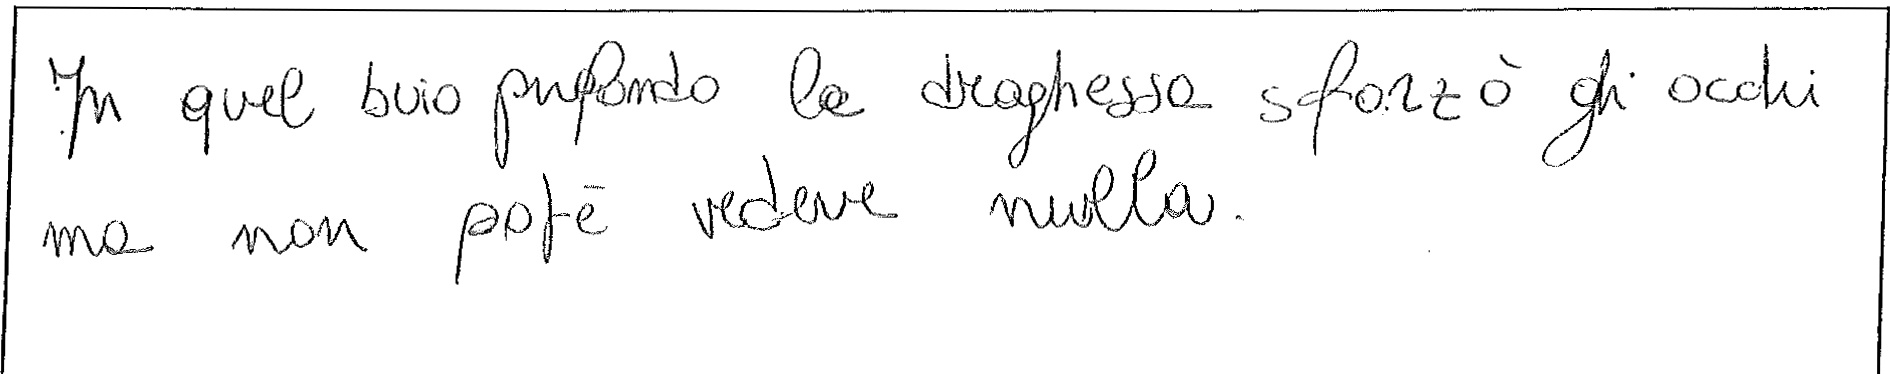 In quel buio profondo la draghessa sforzò gli occhi
ma non potē vedere nulla.